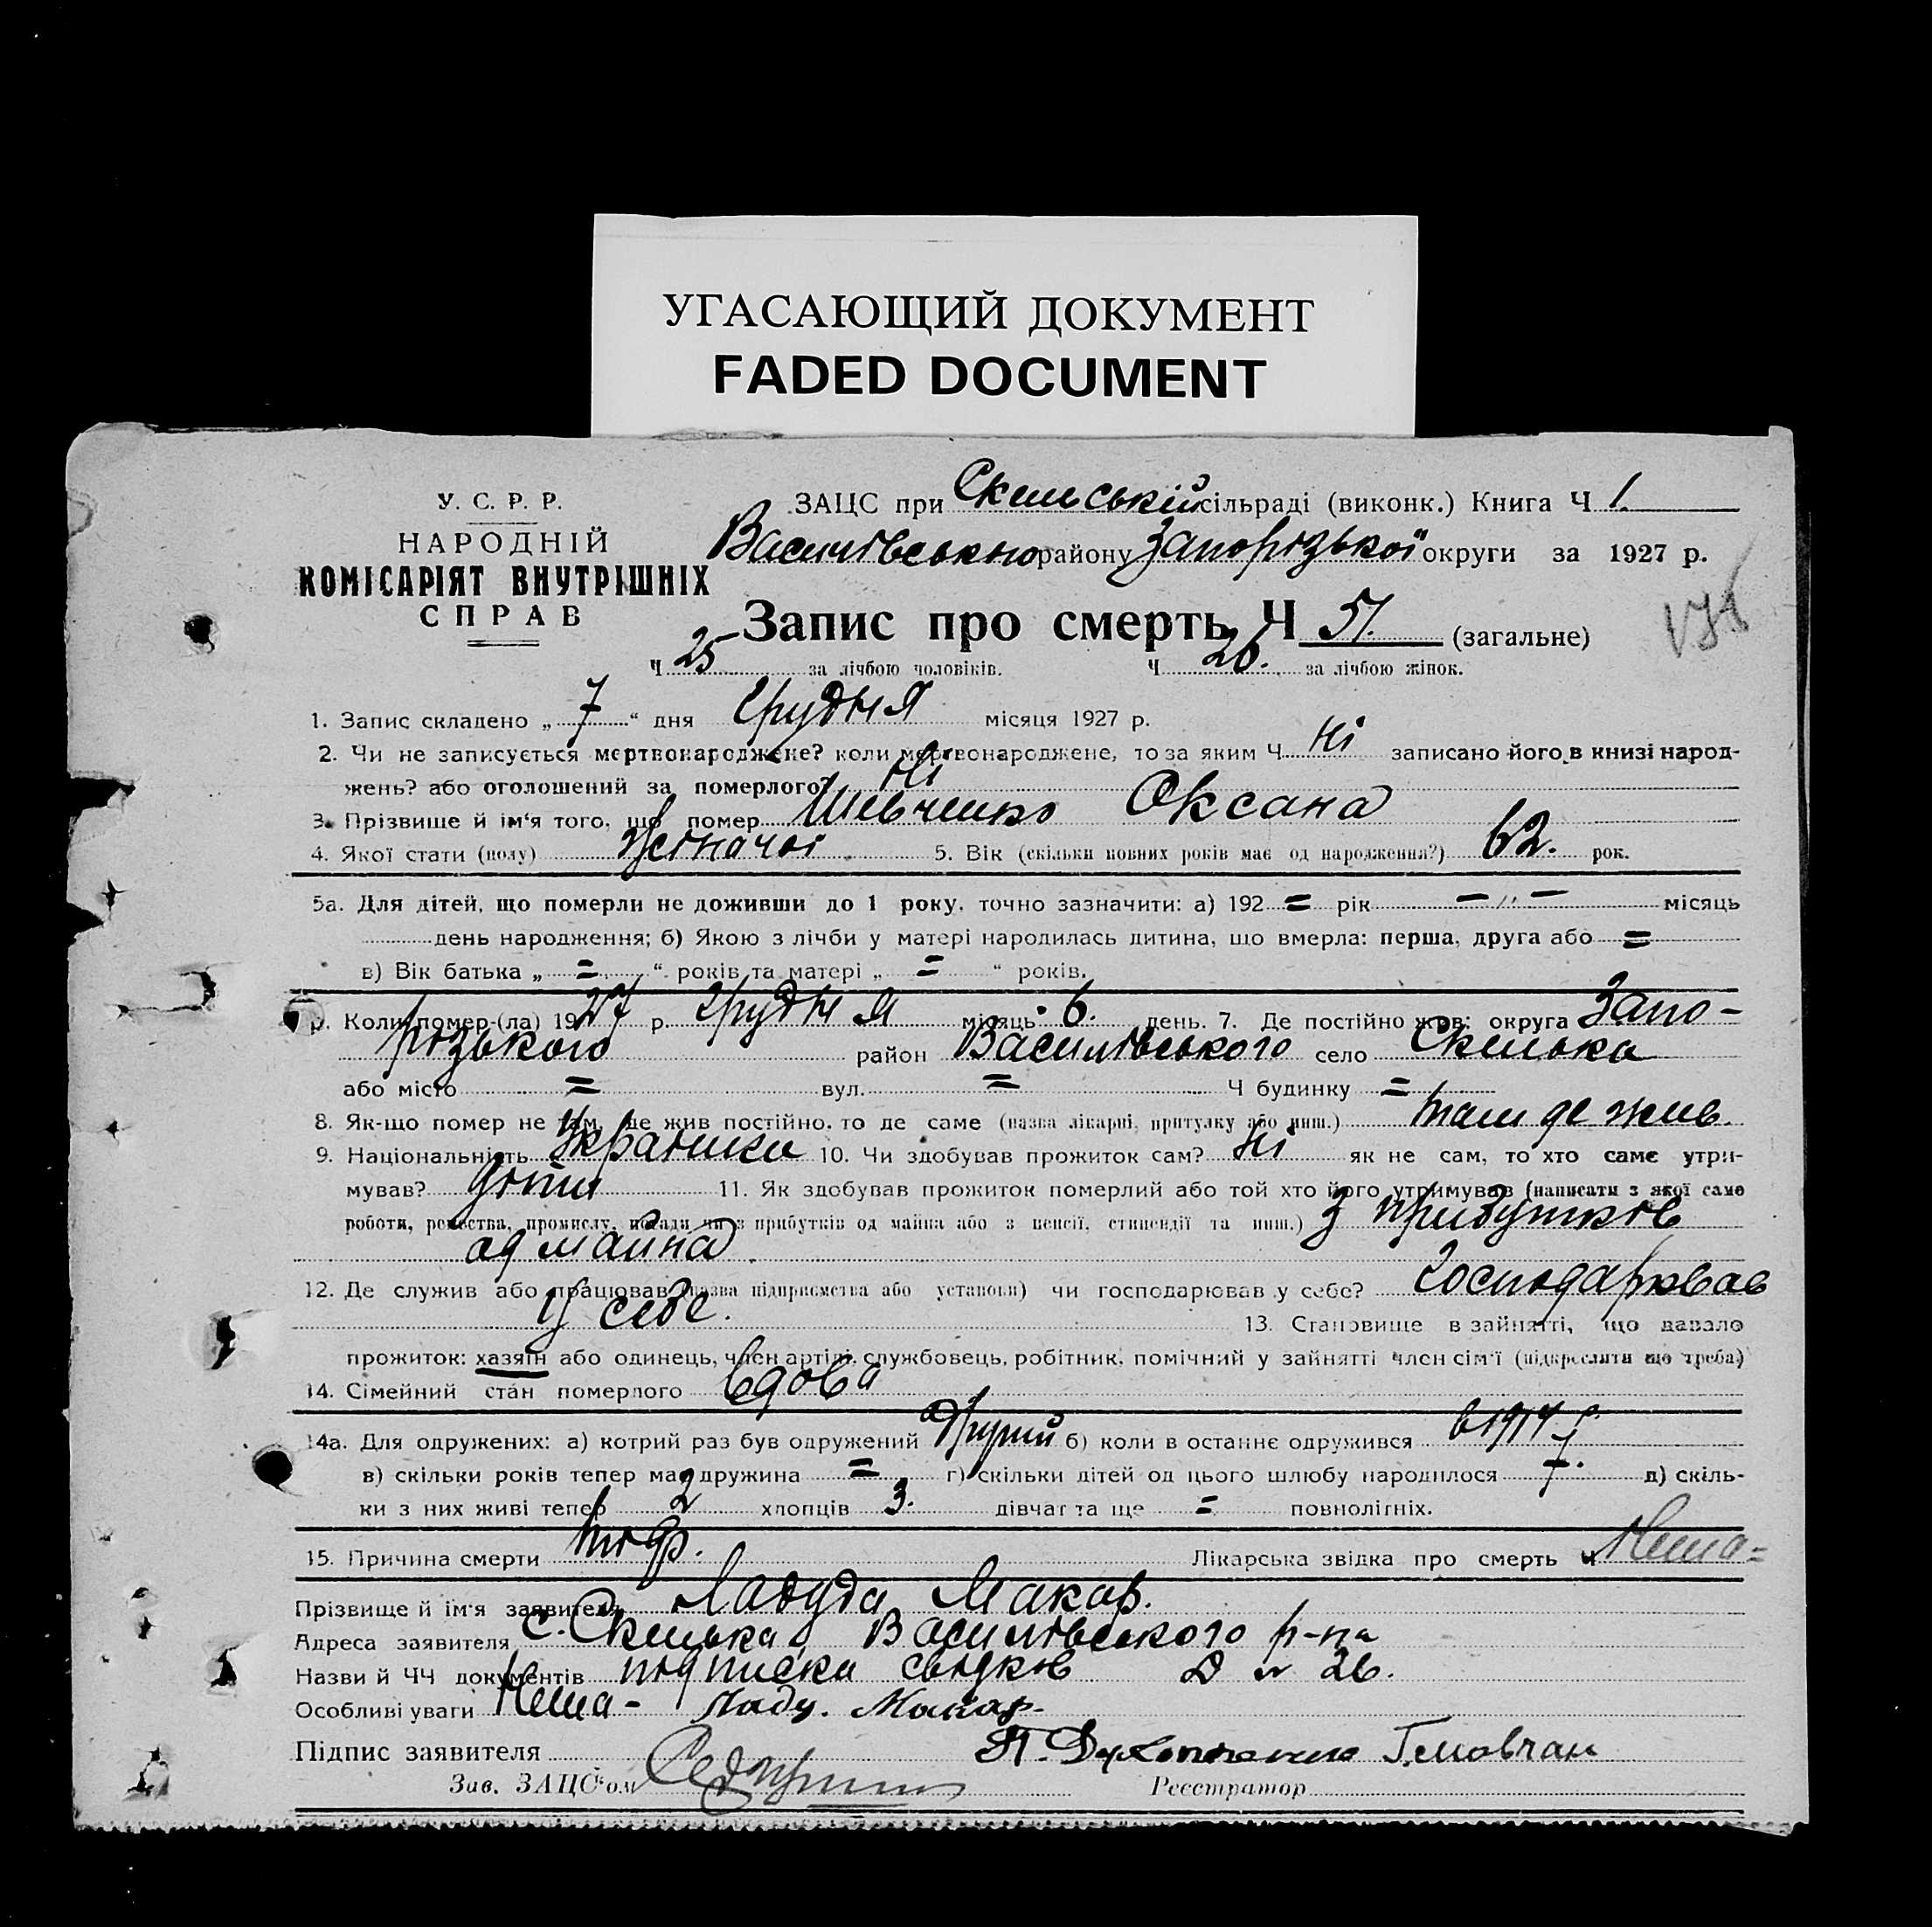 УГАСАЮЩИЙ ДОКУМЕНТ
FADED DOCUMENT
У. С. Р. Р.
НАРОДНІЙ
КОМІСАРІЯТ ВНУТРІШНІХ
СПРАВ
ЗАЦС при Скельській сільраді (виконк.) Книга Ч 1.
Василівського району Запорізької округи за 1927 р.
Запис про смерть Ч 51. (загальне)
Ч 25 за лічбою чоловіків. Ч 26. за лічбою жінок.
1. Запис складено „ 7 “ дня Грудня місяця 1927 р.
2. Чи не записується мертвонароджене? коли мертвонароджене, то за яким Ч Ні записано його в книзі народ-
жень? або оголошений за померлого? Ні
3. Прізвище й ім‘я того, що помер Шевченко Оксана
4. Якої стати (полу) Жіночої 5. Вік (скільки повних років має од народження?) 62. рок.
5а. Для дітей, що померли не доживши до 1 року, точно зазначити: а) 192 = рік – „ – місяць
день народження; б) Якою з лічби у матері народилась дитина, що вмерла: перша, друга або =
в) Вік батька „ = “ років та матері „ = “ років.
Коли помер-(ла) 1927 р. Грудня місяць 6. день. 7. Де постійно жив: округа Запо-
різького район Василівського село Скелька
або місто = вул. = Ч будинку =
8. Як-що помер не там, де жив постійно, то де саме (назва лікарні, притулку або инш.) там де жив.
9. Національність Українка 10. Чи здобував прожиток сам? Ні як не сам, то хто саме утри-
мував? Діти 11. Як здобував прожиток померлий або той хто його утримував (написати з якої само
роботи, ремества, промислу, посади чи з прибутків од майна або з пенсії, стипендії та инш.) З прибутків
од майна
12. Де служив або працював (назва підприємства або установи) чи господарював у себе? Господарював
У себе. 13. Становище в зайнятті, що давало
прожиток: хазяїн або одинець, член артілі, службовець, робітник, помічний у зайнятті член сім‘ї (підкреслити що треба)
14. Сімейний стан померлого вдова
14а. Для одружених: а) котрий раз був одружений Другий б) коли в останнє одружився в 1914 р.
в) скільки років тепер має дружина = г) скільки дітей од цього шлюбу народилося 7. д) скіль-
ки з них живі тепер 2 хлопців 3. дівчат та ще = повнолітніх.
15. Причина смерти тиф. Лікарська звідка про смерть Ч Нема=
Прізвище й ім‘я заявителя Лабуда Макар.
Адреса заявителя с. Скелька Василівського р-на
Назви й ЧЧ документів підписка свідків
Особливі уваги Нема-
Підпис заявителя
Зав. ЗАЦС‘ом Реєстратор